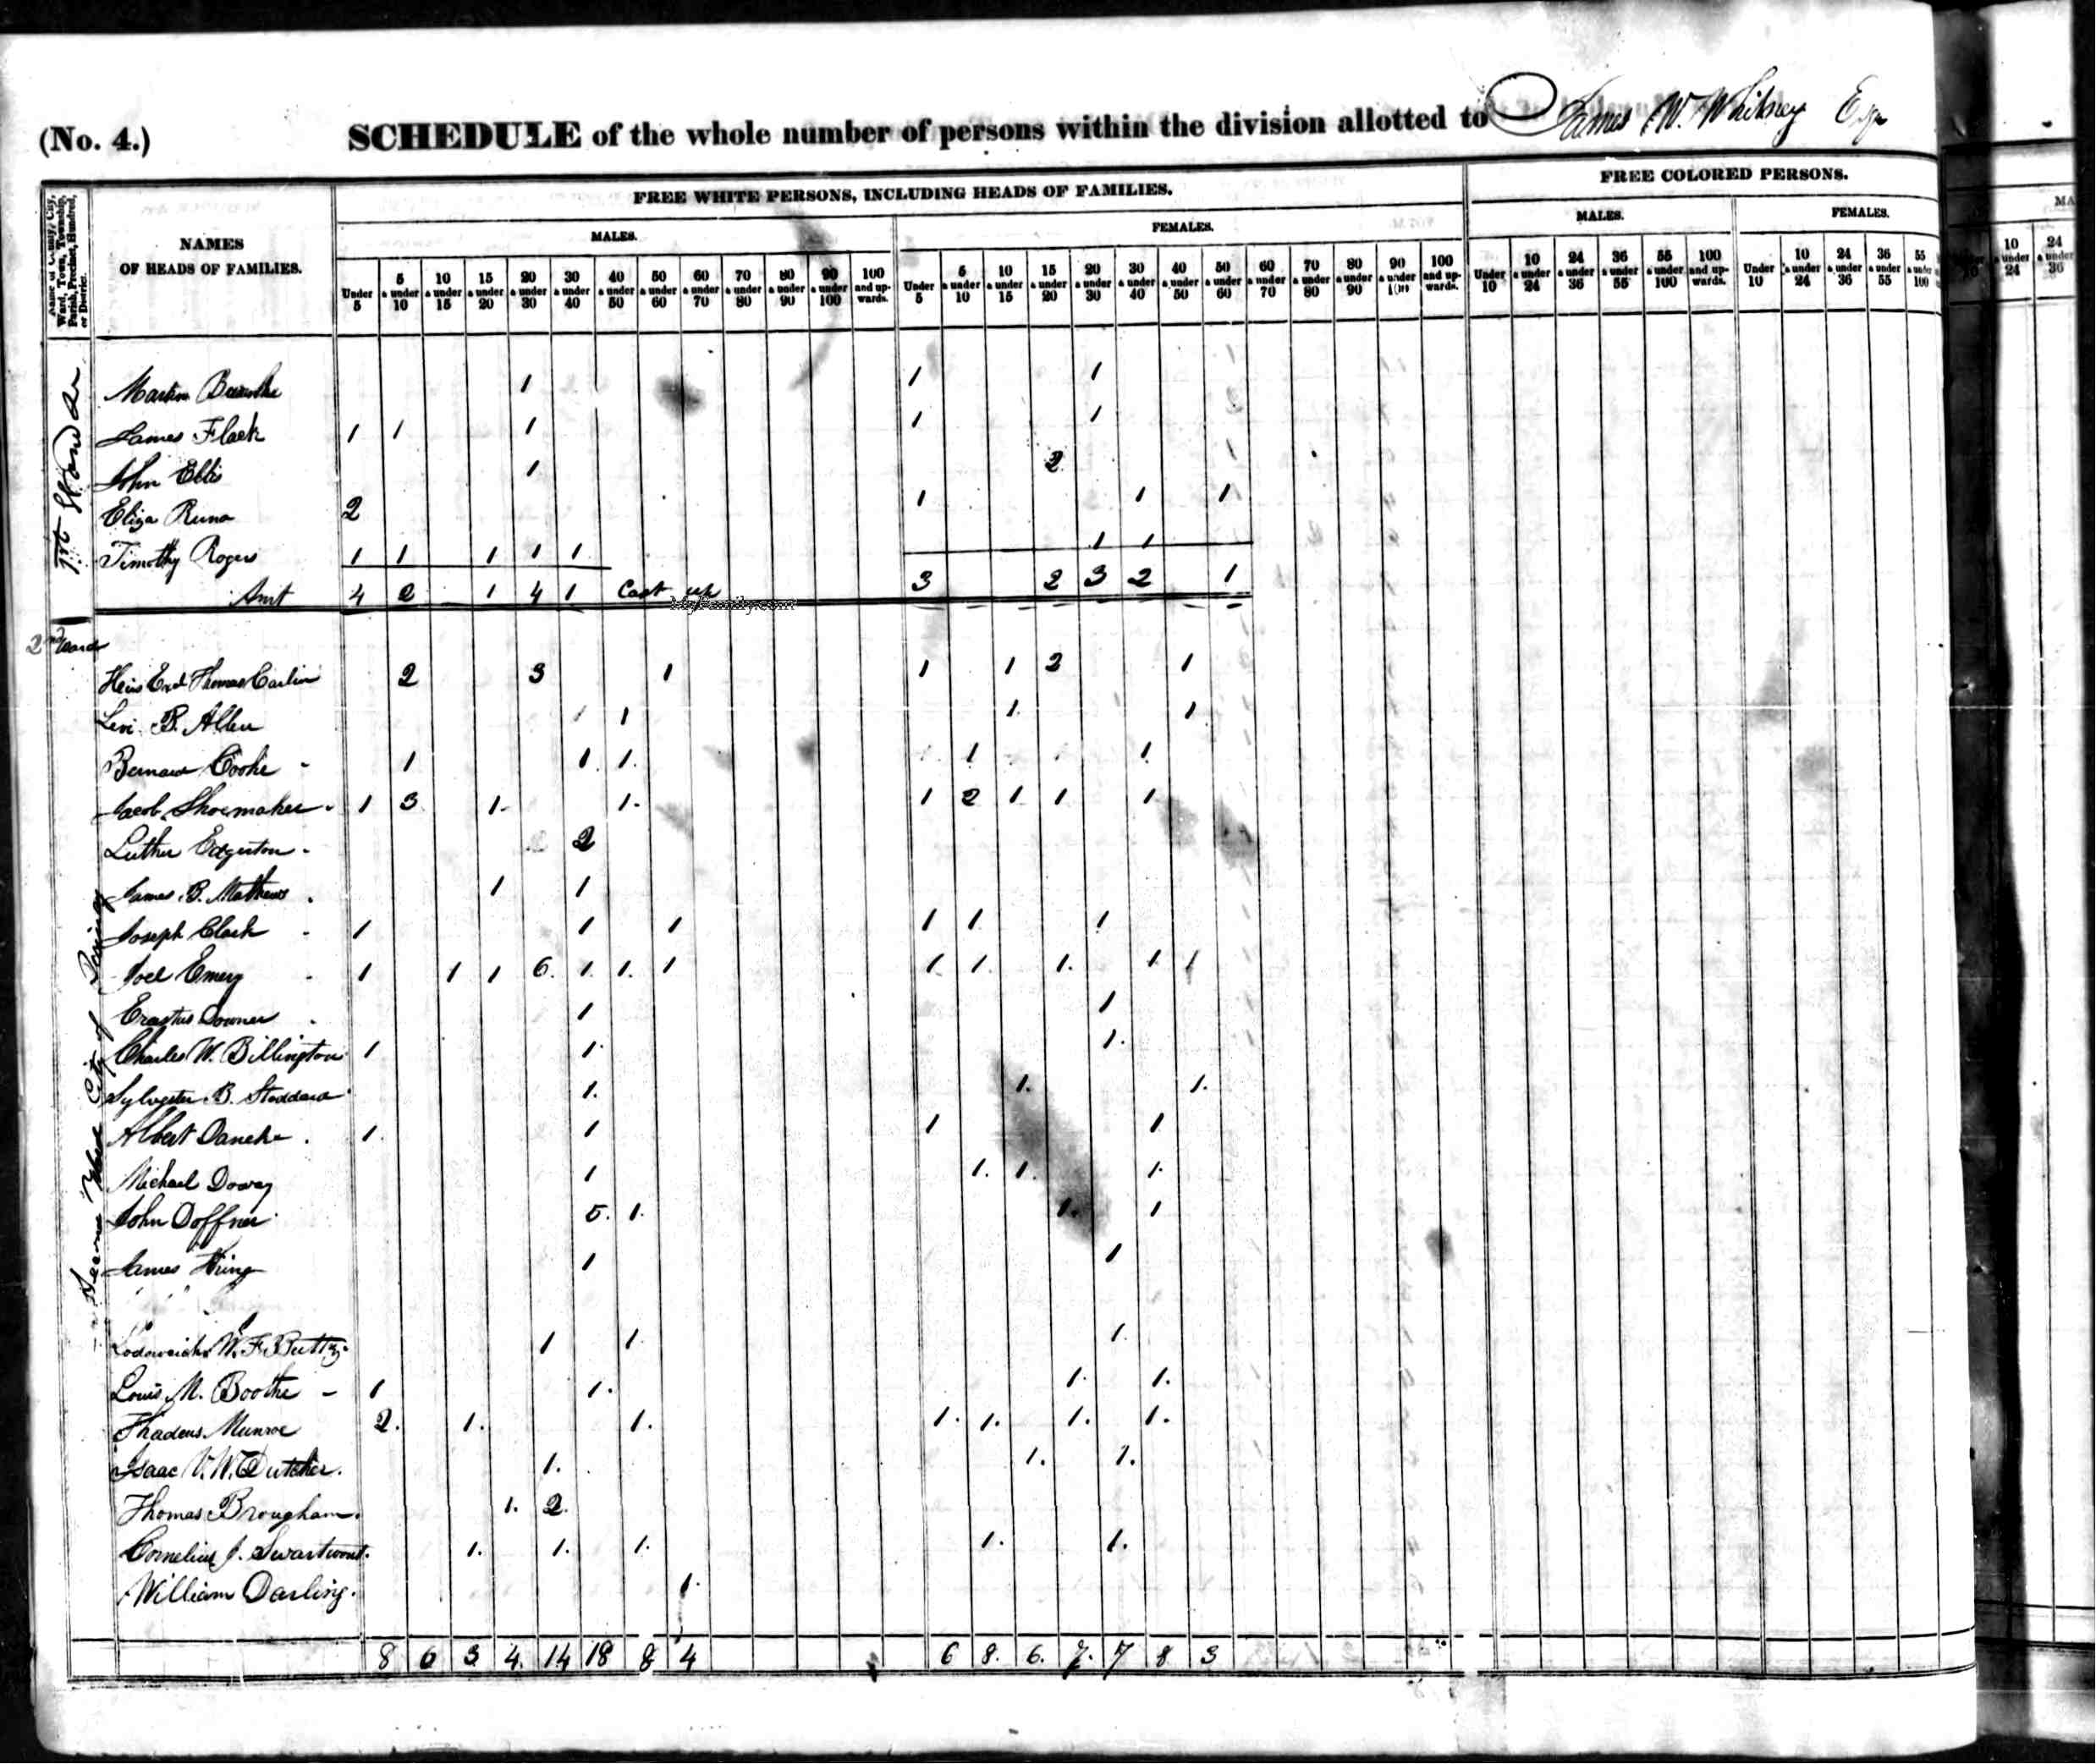 (No. 4.) SCHEDULE of the whole number of persons within the division allotted to James W. Whitney Esqr
Name of County, City, Ward, Town, Township, Parish, Precinct, Hundred, or District.
NAMES OF HEADS OF FAMILIES.
FREE WHITE PERSONS, INCLUDING HEADS OF FAMILIES.
FREE COLORED PERSONS.
MALES. FEMALES. MALES. FEMALES.
Under 5 5 & under 10 10 & under 15 15 & under 20 20 & under 30 30 & under 40 40 & under 50 50 & under 60 60 & under 70 70 & under 80 80 & under 90 90 & under 100 100 and upwards.
Under 5 5 & under 10 10 & under 15 15 & under 20 20 & under 30 30 & under 40 40 & under 50 50 & under 60 60 & under 70 70 & under 80 80 & under 90 90 & under 100 100 and upwards.
Under 10 10 & under 24 24 & under 36 36 & under 55 55 & under 100 100 and upwards.
Under 10 10 & under 24 24 & under 36 36 & under 55 55 & under 100
10 & under 24 24 & under 36
Martin 1 1 1
James Flack 1 1 1 1 1
John Ellis 1 2
Eliza 2 1 1 1
Timothy Rogers 1 1 1 1 1 1 1
Amt 4 2 1 4 1 Cast up 3 2 3 2 1
MyFamily.com
2nd Ward
Thomas Carlin 2 3 1 1 1 2 1
Levi B. Allen 1 1 1
Bernard Cooke 1 1 1 1 1
Jacob Shoemaker 1 3 1 1 1 2 1 1 1
Luther Edgerton 2
James B. Mathews 1 1
Joseph Clark 1 1 1 1 1 1
Joel Emery 1 1 1 6 1 1 1 1 1 1 1 1
Erastus Downer 1 1
Charles W. Billington 1 1 1
Sylvester B. Stoddard 1 1 1
Albert 1 1 1 1
Michael 1 1 1 1
John Doffner 5 1 1 1
James King 1 1
W. F. 1 1 1
Louis M. Boothe 1 1 1 1
Thadeus Munroe 2 1 1 1 1 1 1
Isaac V. W. Dutcher 1 1 1
Thomas Brougham 1 2
Cornelius J. Swartwout 1 1 1 1 1
William Darling 1
8 6 3 4 14 18 8 4 6 8 6 7 7 8 3